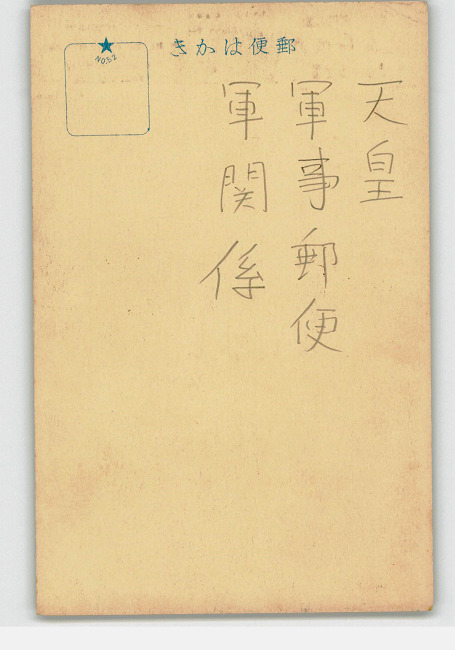 きかは便郵
NO.E2
天皇
軍事郵便
軍関係